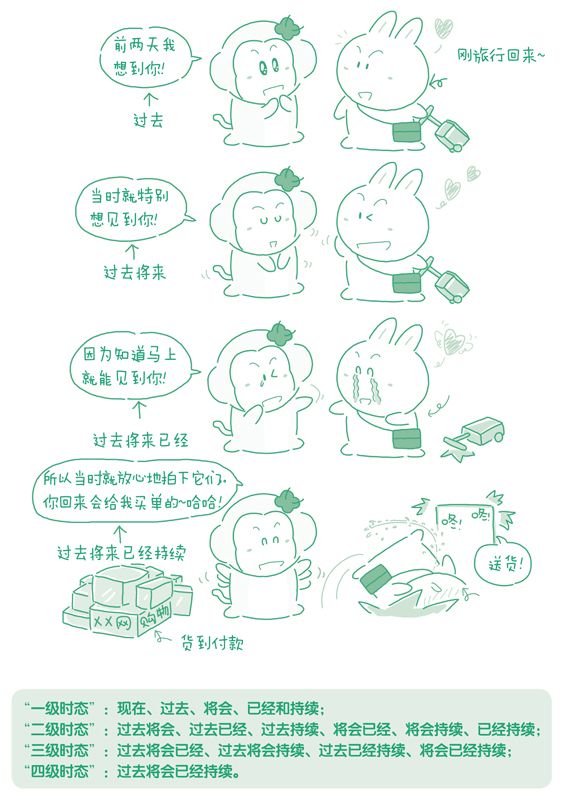 前两天我
想到你!
过去
刚旅行回来~
当时就特别
想见到你!
过去将来
因为知道马上
就能见到你!
过去将来已经
所以当时就放心地拍下它们.
你回来会给我买单的~哈哈!
过去将来已经持续
咚!
咚!
送货!
XX网
购物
货到付款
“一级时态”：现在、过去、将会、已经和持续；
“二级时态”：过去将会、过去已经、过去持续、将会已经、将会持续、已经持续；
“三级时态”：过去将会已经、过去将会持续、过去已经持续、将会已经持续；
“四级时态”：过去将会已经持续。